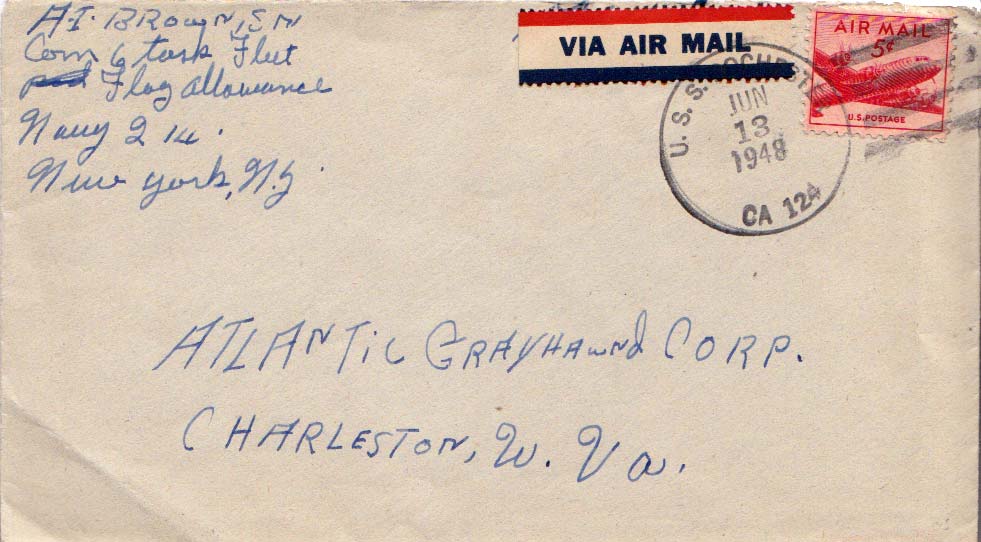 A.I. BROWN, SN
Com 6 task Fleet
Flag allowance
Navy 214.
New york, N.Y.
VIA AIR MAIL
AIR MAIL
5¢
U.S. POSTAGE
U.S.S. ROCHESTER
JUN
13
1948
CA 124
ATLANTIC GRAYHAWND CORP.
CHARLESTON, W. Va.